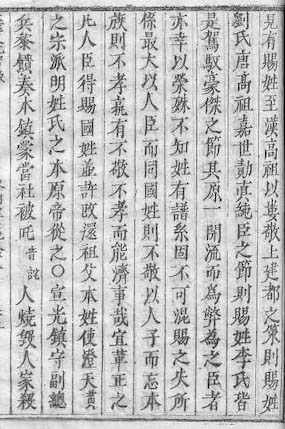 見有賜姓至漢高祖以婁敬上建都之策則賜姓
劉氏唐高祖嘉世勣直純臣之節則賜姓李氏皆
是駕馭豪傑之節其原一開流而為弊為之臣者
亦幸以榮殊不知姓有譜系固不可混賜之失所
係最大以人臣而同國姓則不敬以人子而忘本
族則不孝豈有不敬不孝而能濟事哉宜華正之
凡人臣得賜國姓並許改還祖父本姓使澄天黃
之宗派明姓氏之本原帝從之〇宣光鎮守副總
兵黎 奏水鎮蒙當社被吒音詫人燒毀人家殺